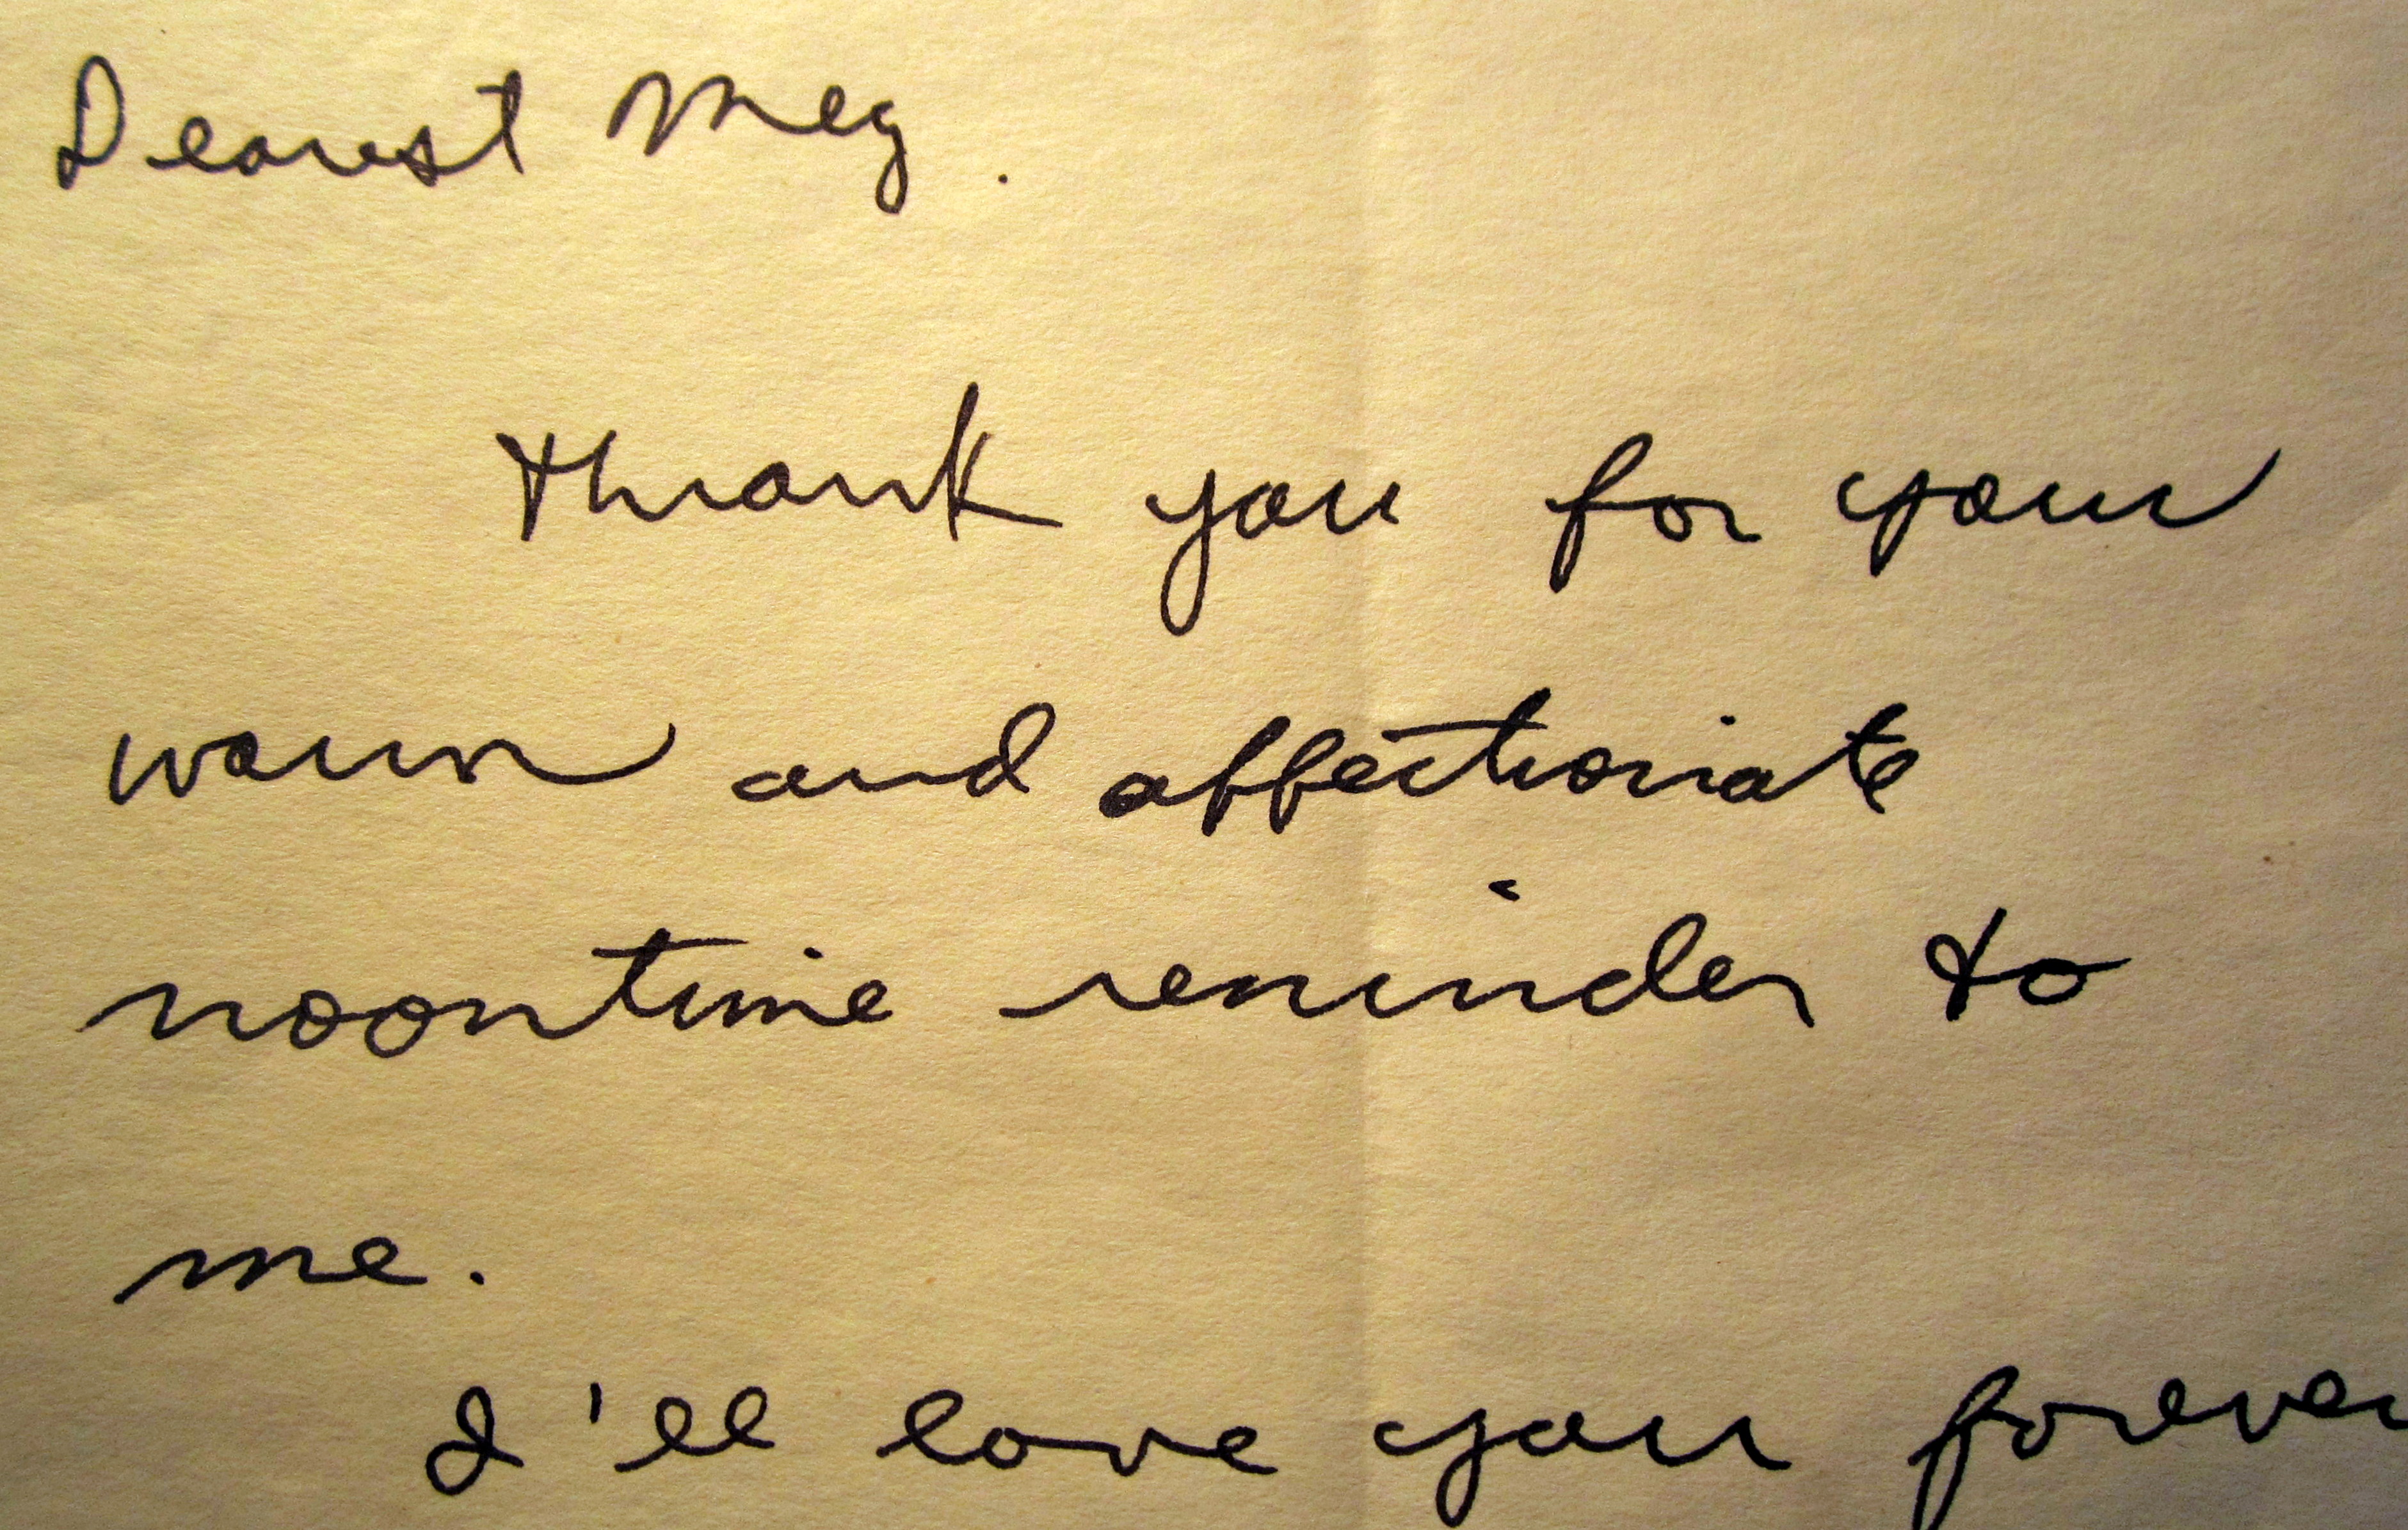 Dearest Meg.
Thank you for your
warm and affectionate
noontime reminder to
me.
I'll love you forever